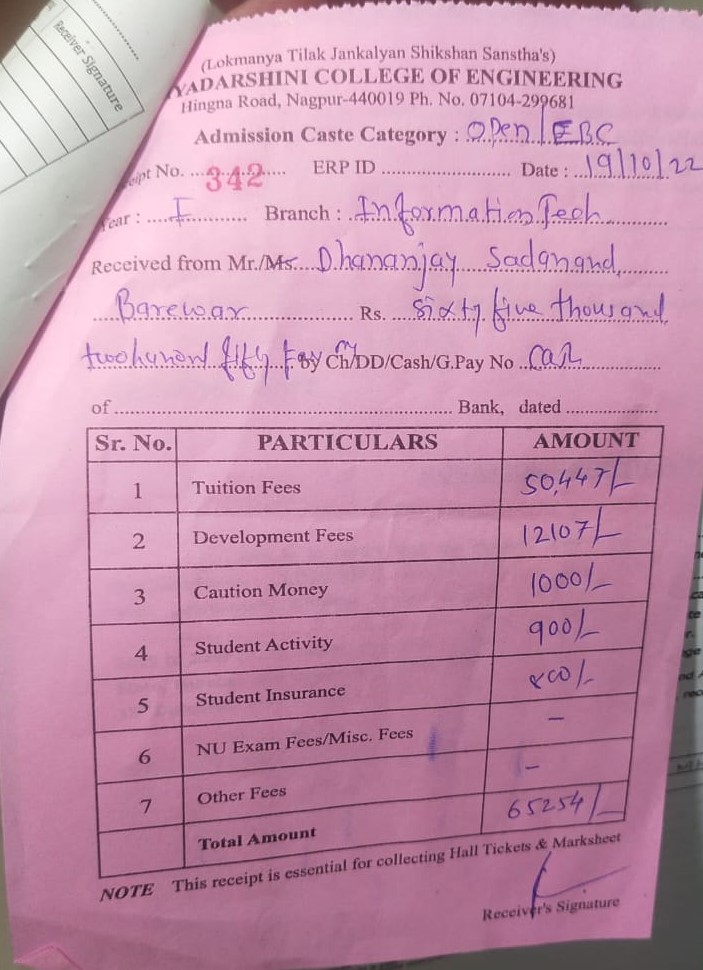 Receiver Signature
(Lokmanya Tilak Jankalyan Shikshan Sanstha's)
YADARSHINI COLLEGE OF ENGINEERING
Hingna Road, Nagpur-440019 Ph. No. 07104-299681
Admission Caste Category : Open/EBC
eipt No. ....342.... ERP ID .............. Date : 19/10/22
Year : ....I.... Branch : Information Tech
Received from Mr./Ms. Dhananjay Sadanand
Barewar Rs. sixty five thousand
fifty by Ch/DD/Cash/G.Pay No .. Cash
of .............. Bank, dated ..............
Sr. No. PARTICULARS AMOUNT
1 Tuition Fees 50,447/-
2 Development Fees 12107/-
3 Caution Money 1000/-
4 Student Activity 900/-
5 Student Insurance 800/-
6 NU Exam Fees/Misc. Fees –
7 Other Fees –
Total Amount 65254/-
NOTE This receipt is essential for collecting Hall Tickets & Marksheet
Receiver's Signature